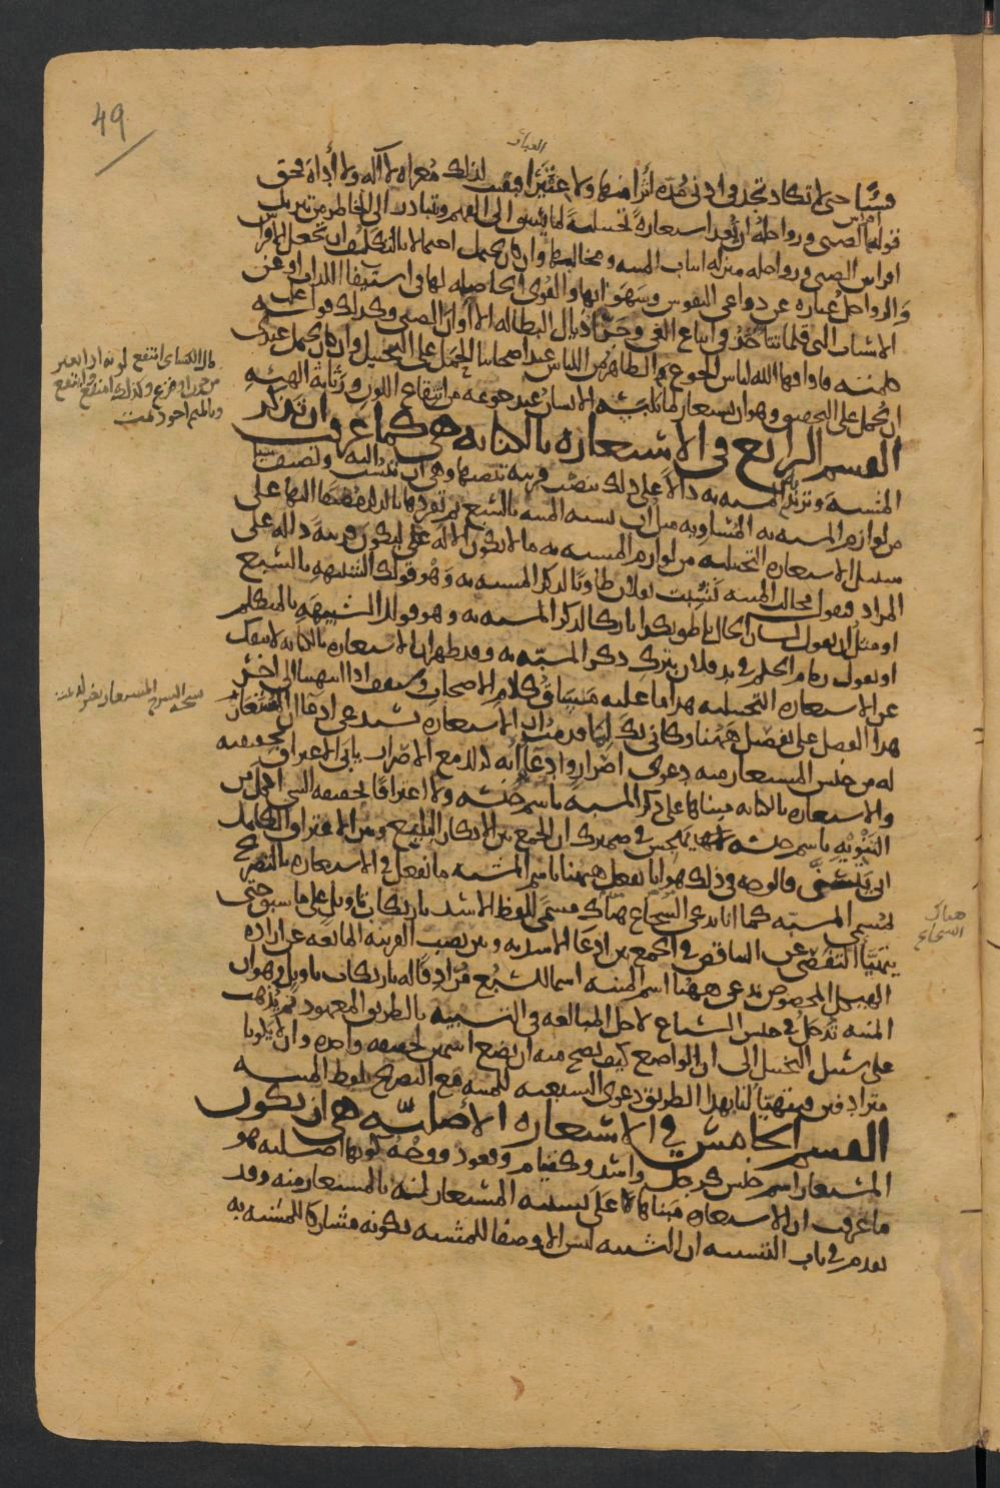 49
العباب
فشيا حتى لا تكاد تجد في ادنى مدة اثرا منها ولا عثيرا فبقيت لذلك معراة لا آلة ولا أداة فحق
قوله افراس الصبى ورواحله ان يعد استعارة تخييلية لما يسبق الى الفهم ويتبادر الى الخاطر من تنزيل
افراس الصبى ورواحله منزلة انياب المنية ومخالبها وان كان يحتمل احتمالا بالتكلف ان تجعل الافراس
والرواحل عبارة عن دواعي النفوس وشهواتها والقوى الحاصلة لها في استيفاء اللذات او عن
الاسباب التي قلما تتآخذ في اتباع الغي وجر اذيال البطالة الا اوان الصبى وكذلك قوله علت
كلمته فاذاقها الله لباس الجوع الظاهر من اللباس عند اصحابنا الحمل على التخييل وان كان يحتمل عندي
ان يحمل على التحقيق وهو ان يستعار لما يلبسه الانسان عند جوعه من انتقاع اللون ورثاثة الهيئة
القسم الرابع في الاستعارة بالكناية هي كما عرفت ان تذكر
المشبه وتريد المشبه به دالا على ذلك بنصب قرينة تنصبها وهي ان تنسب اليه وتضيف شيئا
من لوازم المشبه به المساوية مثل ان تشبه المنية بالسبع ثم تفردها بالذكر مضيفا اليها على
سبيل الاستعارة التخييلية من لوازم المشبه به ما لا يكون الا له ليكون قرينة دالة على
المراد فتقول مخالب المنية نشبت بفلان طاويا لذكر المشبه به وهو قولك الشبيهة بالسبع
او مثل ان تقول لسان الحال ناطق بكذا تاركا لذكر المشبه به وهو قولك الشبيهة بالمتكلم
او تقول زمام الحكم في يد فلان بترك ذكر المشبه به وقد ظهر ان الاستعارة بالكناية لا تنفك
عن الاستعارة التخييلية هذا ما عليه مساق كلام الاصحاب وستقف اذا انتهينا الى آخر
هذا الفصل على تفصيل ههنا وكأني بك لما قدمت ان الاستعارة تستدعي ادعاء ان المستعار
له من جنس المستعار منه دعوى اصرار وادعاء انه كذلك مع الاصرار يأبى الاعتراف بحقيقته
والاستعارة بالكناية مبناها على ذكر المشبه باسم جنسه ولا اعترافا بحقيقة الشيء اكمل من
التنويه باسم جنسه يهجس في ضميرك ان الجمع بين الانكار البليغ وبين الاعتراف الكامل
انى يتسنى فالوجه في ذلك هو انا نفعل ههنا باسم المشبه ما نفعل في الاستعارة بالتصريح
بمسمى المشبه كما انا ندعي الشجاع هناك مسمى للفظ الاسد بارتكاب تأويل على ما سبق حتى
يتهيأ التفصي عن التناقض في الجمع بين ادعاء الاسدية وبين نصب القرينة المانعة عن ارادة
الهيكل المخصوص ندعي ههنا اسم المنية اسما للسبع مرادفا له بارتكاب تأويل وهو ان
المنية تدخل في جنس السباع لاجل المبالغة في التشبيه بالطريق المعهود ثم نذهب
على سبيل التخييل الى ان الواضع كيف يصح منه ان يضع اسمين لحقيقة واحدة وان لا يكونا
مترادفين فيتهيأ لنا بهذا الطريق دعوى السبعية للمنية مع التصريح بلفظ المنية
القسم الخامس في الاستعارة الاصلية هي ان يكون
المستعار اسم جنس كرجل واسد وكقيام وقعود ووجه كونها اصلية هو
ما عرفت ان الاستعارة مبناها على تشبيه المستعار له بالمستعار منه وقد
تقدم في باب التشبيه ان التشبيه ليس الا وصفا للمشبه بكونه مشاركا للمشبه به
هناك
الشجاع